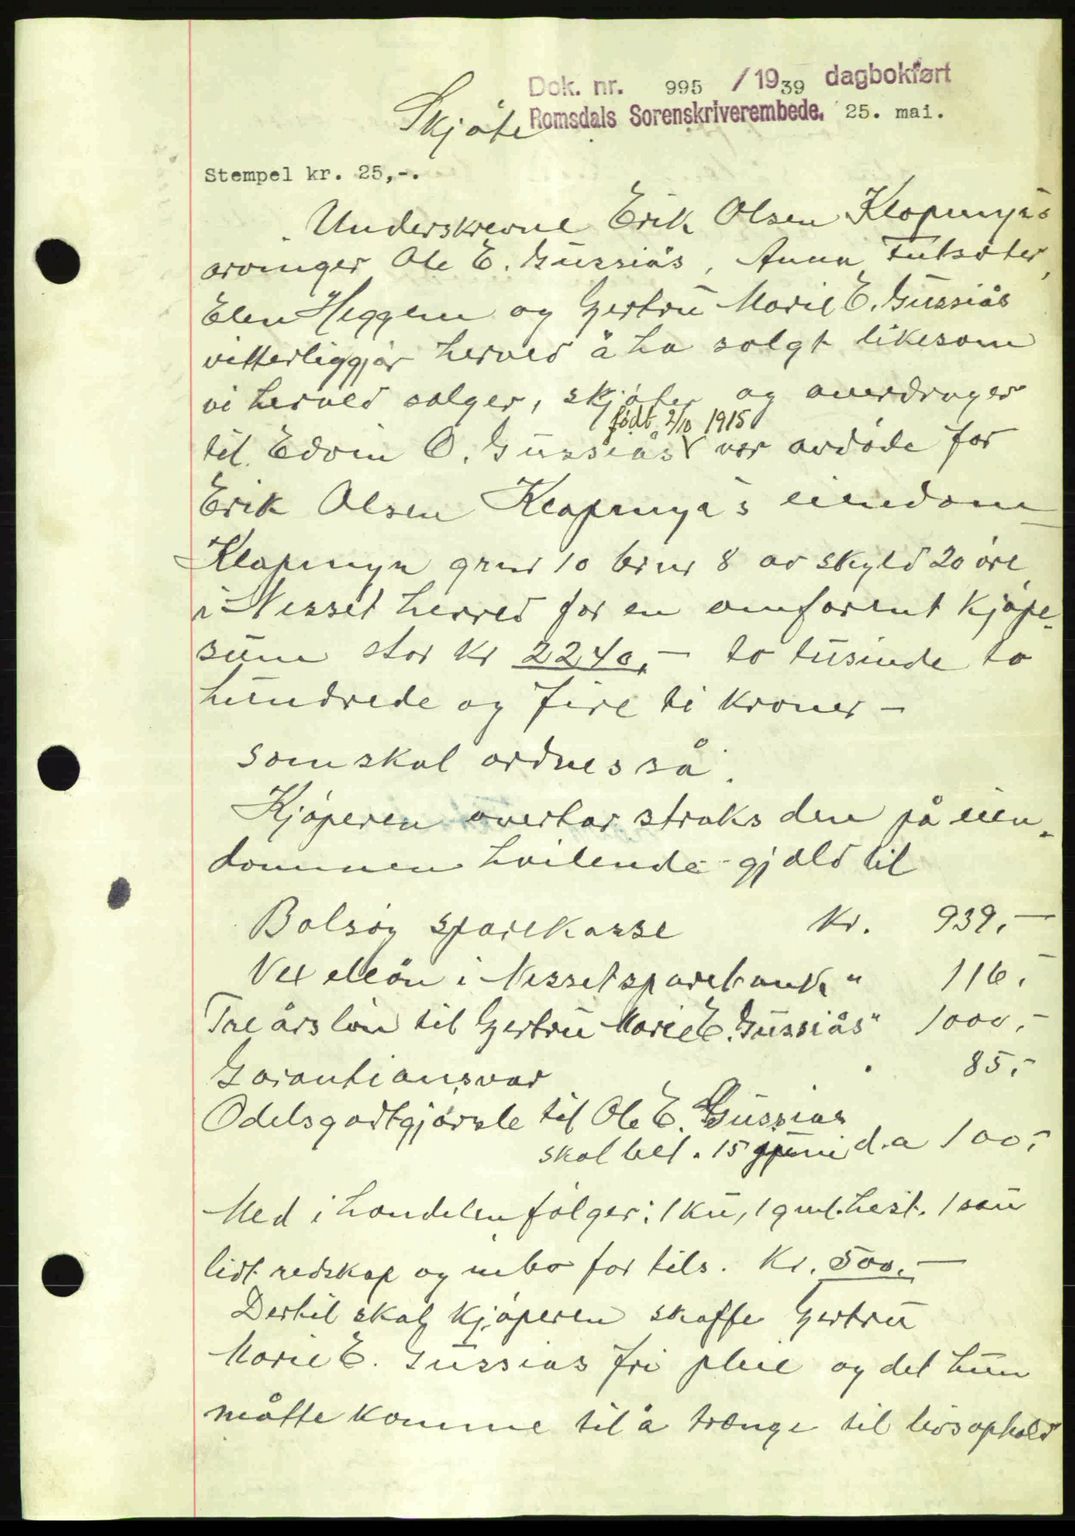 Dok. nr. 995 / 1939 dagbokført
Romsdals Sorenskriverembede. 25. mai.
Skjøte
Stempel kr. 25,-.
Underskrevne Erik Olsen Klopmyrs
arvinger Ole E. Gussiås, Anna
Elen Heggem og Gertru Marie E. Gussiås
vitterliggjør herved å ha solgt likesom
vi herved selger, skjøter og overdrager
født 2/10 1915
til Edvin O. Gussiås V vor avdøde far
Erik Olsen Klopmyrs eiendom
Klopmyr grnr 10 brnr 8 av skyld 20 øre
i Nesset herred for en omforent kjøpe-
sum stor kr 2240,- to tusinde to
hundrede og fire ti kroner -
som skal ordnes så:
Kjøperen overtar straks den på eien-
dommen hvilende gjæld til
Bolsøy sparekasse kr. 939,-
Vexellån i Nesset sparebank " 116,-
Tre års løn til Gertru Marie E. Gussiås " 1000,-
Garantiansvar " 85,-
Odelsgodtgjørelse til Ole E. Gussiås
skal bet. 15 juni d.a 100,-
Med i handelen følger: 1 ku, 1 gml. hest. 1 sau
lidt redskap og inbo for tils. kr. 500,-
Dertil skal kjøperen skaffe Gertru
Marie E. Gussiås fri pleie og det hun
måtte komme til å trænge til livsophold